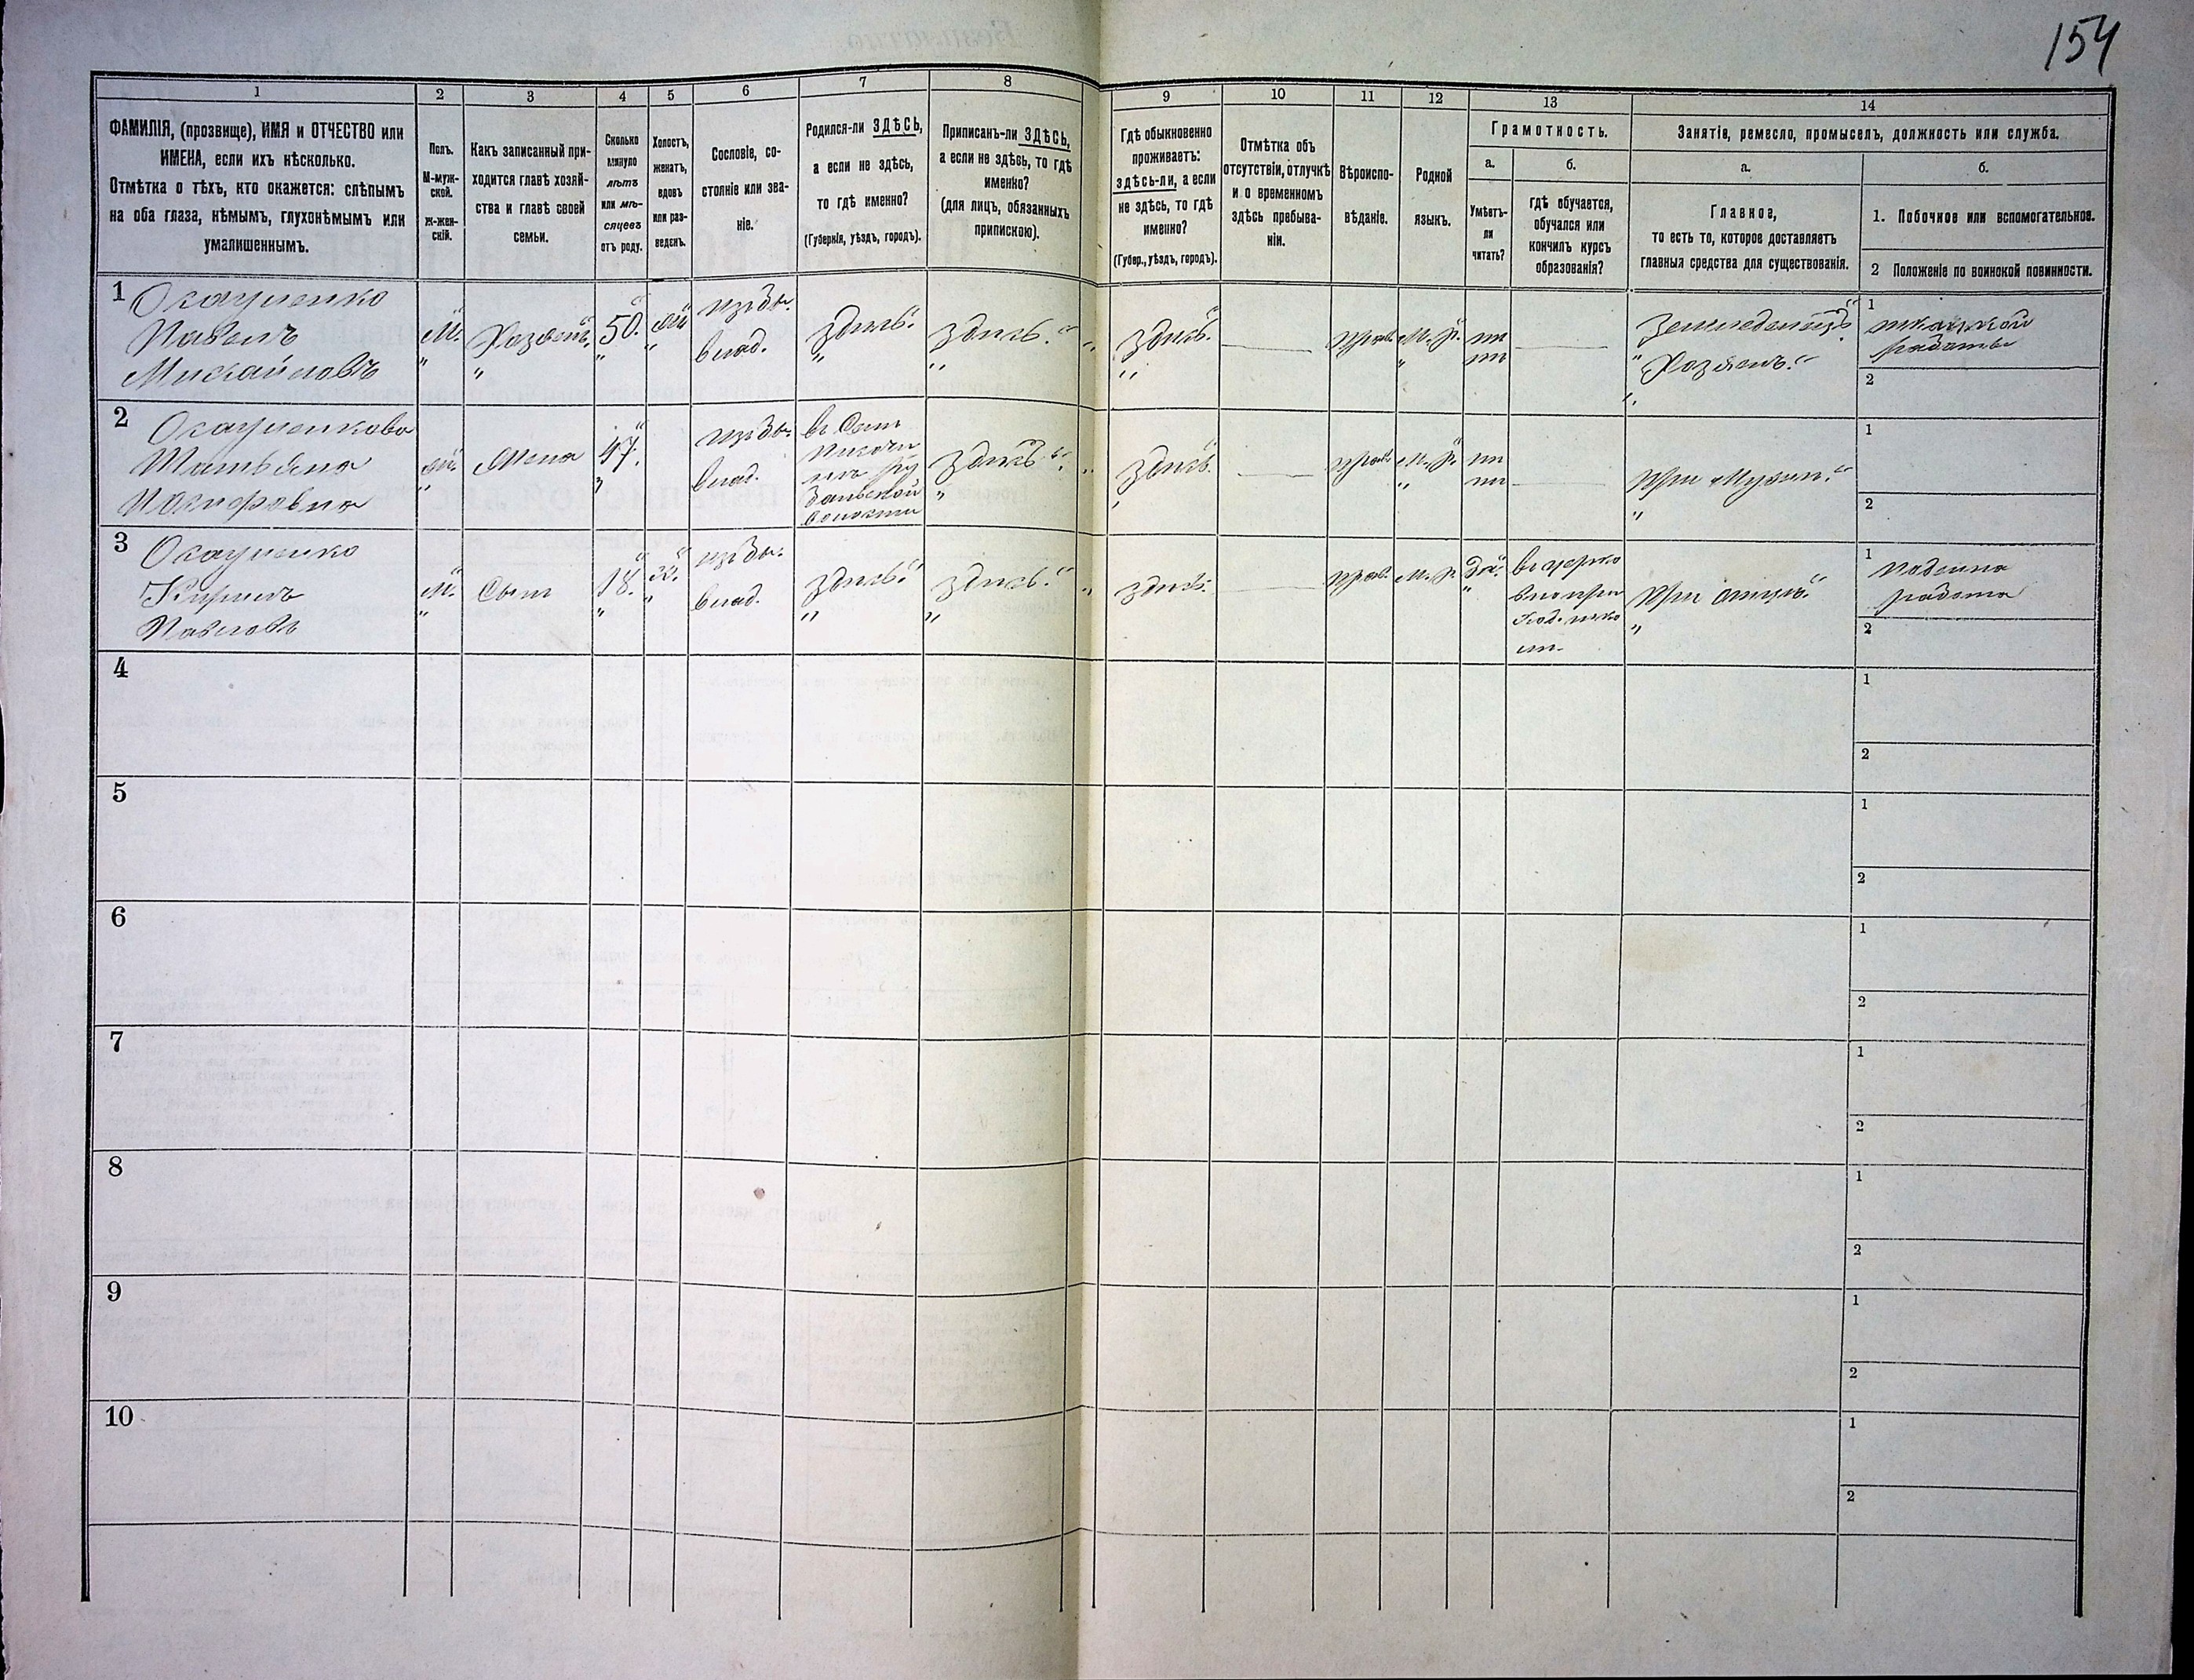 154
1
2
3
4
5
6
7
8
9
10
11
12
13
14
ФАМИЛІЯ, (прозвище), ИМЯ и ОТЧЕСТВО или
ИМЕНА, если ихъ нѣсколько.
Отмѣтка о тѣхъ, кто окажется: слѣпымъ
на оба глаза, нѣмымъ, глухонѣмымъ или
умалишеннымъ.
Полъ.
М-муж-
ской.
Ж-жен-
скій.
Какъ записанный при-
ходится главѣ хозяй-
ства и главѣ своей
семьи.
Сколько
минуло
лѣтъ
или мѣ-
сяцевъ
отъ роду.
Холостъ,
женатъ,
вдовъ
или раз-
веденъ.
Сословіе, со-
стояніе или зва-
ніе.
Родился-ли ЗДѢСЬ,
а если не здѣсь,
то гдѣ именно?
(Губернія, уѣздъ, городъ).
Приписанъ-ли ЗДѢСЬ,
а если не здѣсь, то гдѣ
именно?
(для лицъ, обязанныхъ
припискою).
Гдѣ обыкновенно
проживаетъ:
здѣсь-ли, а если
не здѣсь, то гдѣ
именно?
(Губер., уѣздъ, городъ).
Отмѣтка объ
отсутствіи, отлучкѣ
и о временномъ
здѣсь пребыва-
ніи.
Вѣроиспо-
вѣданіе.
Родной
языкъ.
Грамотность.
а.
Умѣетъ-
ли
читать?
б.
гдѣ обучается,
обучался или
кончилъ курсъ
образованія?
Занятіе, ремесло, промыселъ, должность или служба.
а.
Главное,
то есть то, которое доставляетъ
главныя средства для существованія.
б.
1. Побочное или вспомогательное.
2 Положеніе по воинской повинности.
1
Павелъ
Михайловъ
М.
Хозяинъ
50.
изъ бы.
влад.
здѣсь.
здѣсь.
здѣсь.
прав.
М. р.
Земледелецъ
Хозяинъ.
1
работы
2
2
Татьяна
Жена
47.
изъ бы.
влад.
волости
здѣсь
здѣсь.
прав.
М. р.
При Мужи.
1
2
3
Кирилъ
Павловъ
М.
Сынъ
18.
изъ бы.
влад.
здѣсь.
здѣсь.
здѣсь.
прав.
М. р.
да.
въ церко
При отцу.
1
работа
2
4
1
2
5
1
2
6
1
2
7
1
2
8
1
2
9
1
2
10
1
2